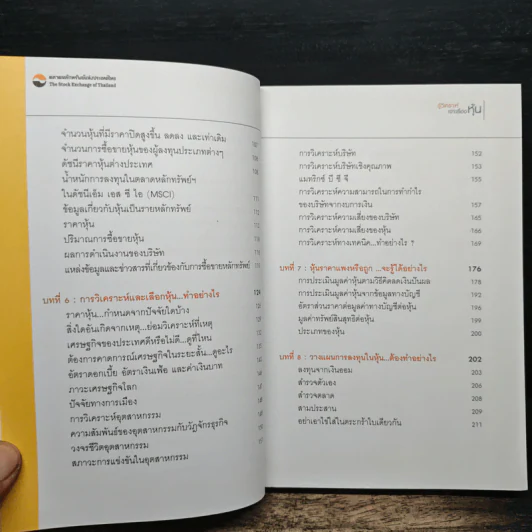 ตลาดหลักทรัพย์แห่งประเทศไทย
The Stock Exchange of Thailand
จำนวนหุ้นที่มีราคาปิดสูงขึ้น ลดลง และเท่าเดิม
จำนวนการซื้อขายหุ้นของผู้ลงทุนประเภทต่างๆ
ดัชนีราคาหุ้นต่างประเทศ
น้ำหนักการลงทุนในตลาดหลักทรัพย์ฯ
ในดัชนีเอ็ม เอส ซี ไอ (MSCI)
ข้อมูลเกี่ยวกับหุ้นเป็นรายหลักทรัพย์
ราคาหุ้น
ปริมาณการซื้อขายหุ้น
ผลการดำเนินงานของบริษัท
แหล่งข้อมูลและข่าวสารที่เกี่ยวข้องกับการซื้อขายหลักทรัพย์
บทที่ 6 : การวิเคราะห์และเลือกหุ้น...ทำอย่างไร
ราคาหุ้น...กำหนดจากปัจจัยใดบ้าง
สิ่งใดอันเกิดจากเหตุ...ย่อมวิเคราะห์ที่เหตุ
เศรษฐกิจของประเทศดีหรือไม่ดี...ดูที่ไหน
ต้องการคาดการณ์เศรษฐกิจในระยะสั้น...ดูอะไร
อัตราดอกเบี้ย อัตราเงินเฟ้อ และค่าเงินบาท
ภาวะเศรษฐกิจโลก
ปัจจัยทางการเมือง
การวิเคราะห์อุตสาหกรรม
ความสัมพันธ์ของอุตสาหกรรมกับวัฏจักรธุรกิจ
วงจรชีวิตอุตสาหกรรม
สภาวะการแข่งขันในอุตสาหกรรม
หุ้น
การวิเคราะห์บริษัท 152
การวิเคราะห์บริษัทเชิงคุณภาพ 153
แมทริกซ์ บี ซี จี 155
การวิเคราะห์ความสามารถในการทำกำไร
ของบริษัทจากงบการเงิน 157
การวิเคราะห์ความเสี่ยงของบริษัท 165
การวิเคราะห์ความเสี่ยงของหุ้น 166
การวิเคราะห์ทางเทคนิค...ทำอย่างไร ? 169
บทที่ 7 : หุ้นราคาแพงหรือถูก ...จะรู้ได้อย่างไร 176
การประเมินมูลค่าหุ้นตามวิธีคิดลดเงินปันผล 178
การประเมินมูลค่าหุ้นจากข้อมูลทางบัญชี 192
อัตราส่วนราคาต่อมูลค่าทางบัญชีต่อหุ้น 196
มูลค่าทรัพย์สินสุทธิต่อหุ้น 199
ประเภทของหุ้น 200
บทที่ 8 : วางแผนการลงทุนในหุ้น...ต้องทำอย่างไร 202
ลงทุนจากเงินออม 203
สำรวจตัวเอง 206
สำรวจตลาด 208
สามประสาน 209
อย่าเอาไข่ใส่ในตะกร้าใบเดียวกัน 211